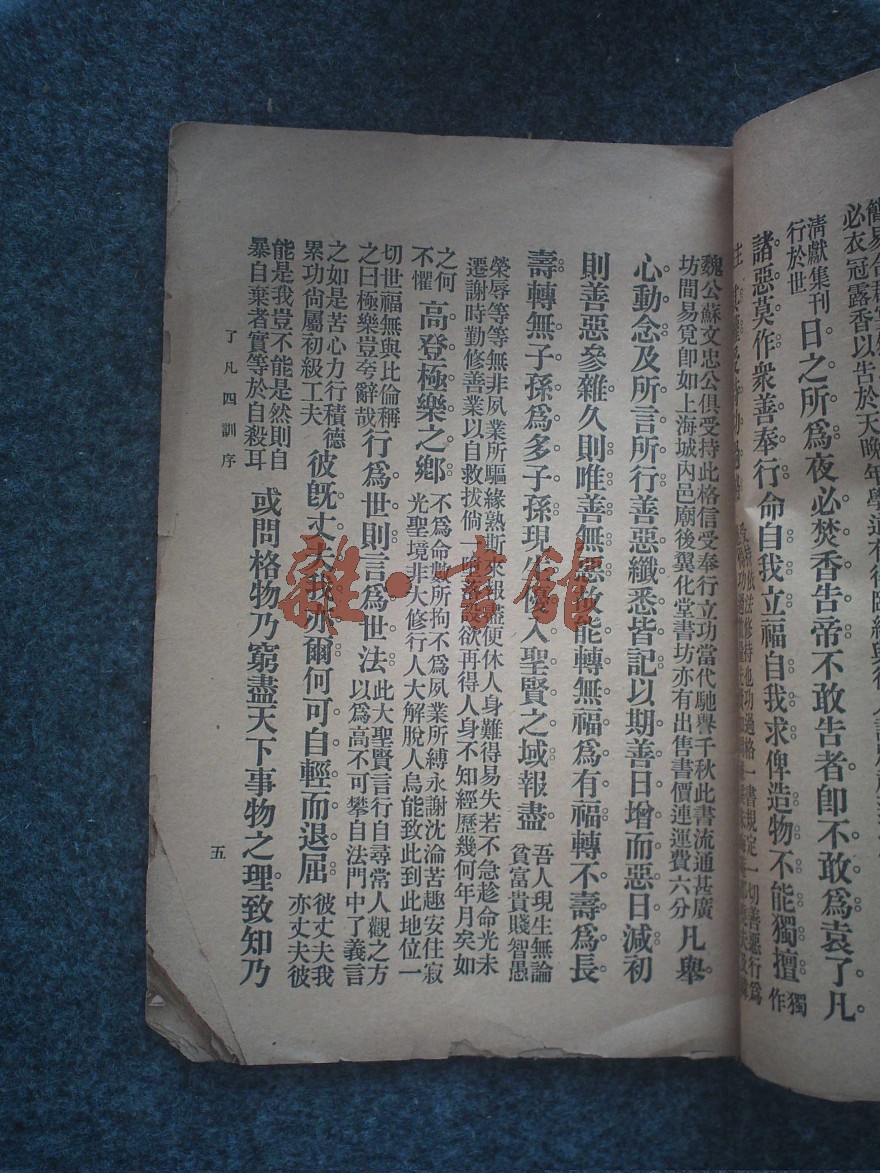 必衣冠露香以告於天晚年學道有得臨
清獻集刊
行於世
日之所爲夜必焚香告帝不敢告者卽不敢爲袁了凡
諸惡莫作衆善奉行命自我立福自我求俾造物不能獨擅
獨
作
主
受持依法修持也功過格一書規定一切善惡行爲
魏公蘇文忠公俱受持此格信受奉行立功當代馳譽千秋此書流通甚廣
坊間易覓卽如上海城內邑廟後翼化堂書坊亦有出售書價連運費六分
凡舉
心動念及所言所行善惡纖悉皆記以期善日增而惡日減初
則善惡參雜久則唯善無惡故能轉無福爲有福轉不壽爲長
壽轉無子孫爲多子孫現生優入聖賢之域報盡
吾人現生無論
貧富貴賤智愚
榮辱等等無非夙業所驅緣熟斯來報盡便休人身難得易失若不急趁命光未
遷謝時勤修善業以自救拔倘一墮落設欲再得人身不知經歷幾何年月矣如
之何
不懼
高登極樂之鄉
不爲命數所拘不爲夙業所縛永謝沈淪苦趣安住寂
光聖境非大修行人大解脫人烏能致此到此地位一
切世福無與比倫稱
之曰極樂豈夸辭哉
行爲世則言爲世法
此大聖賢言行自尋常人觀之方
以爲高不可攀自法門中了義言
之如是苦心力行積德
累功尙屬初級工夫
彼旣丈夫我亦爾何可自輕而退屈
彼丈夫我
亦丈夫彼
能是我豈不能是然則自
暴自棄者實等於自殺耳
或問格物乃窮盡天下事物之理致知乃
了凡四訓序
五
雜·書館